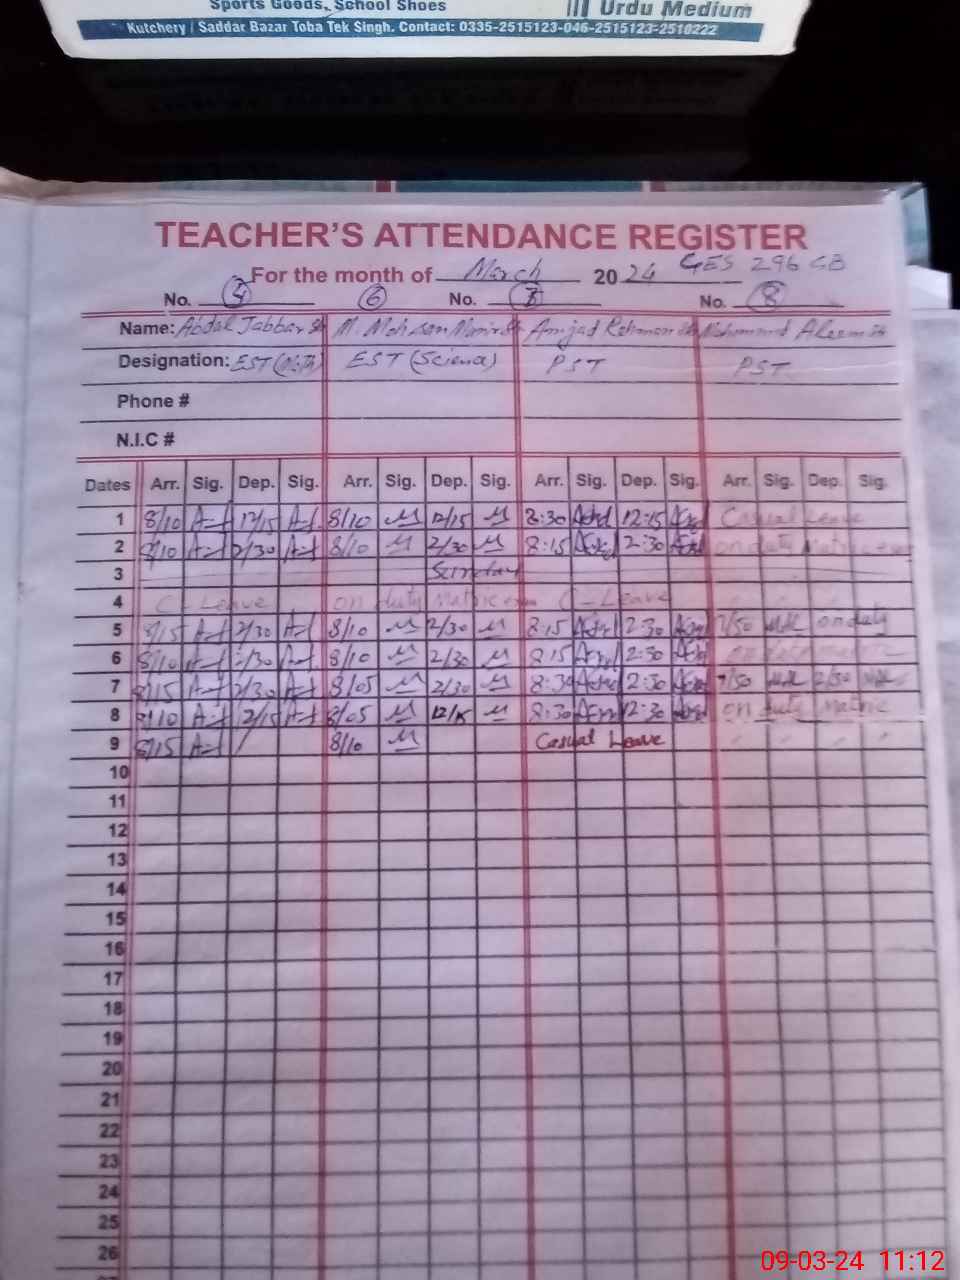 Sports Goods, School Shoes
Urdu Medium
Kutchery / Saddar Bazar Toba Tek Singh. Contact: 0335-2515123-046-2515123-2510222
TEACHER'S ATTENDANCE REGISTER
For the month of March 2024 GES 296 GB
No. No. 7 No. 8
6
Name: Abdul Jabbar M. Mohson Amjad Rehman Muhammad Aleem
Designation: EST EST (Science) PST PST
Phone #
N.I.C #
Dates Arr. Sig. Dep. Sig. Arr. Sig. Dep. Sig. Arr. Sig. Dep. Sig. Arr. Sig. Dep. Sig.
1 8/10 12/15 8/10 12/15 8:30 12:15 Casual Leave
2 8/10 2/30 8/10 2/30 8:15 2:30 on duty Matric
3 Sunday
4 C-Leave on duty Matric C-Leave
5 8/15 2/30 8/10 2/30 8:15 2:30 7/50 on duty
6 8/10 2/30 8/10 2/30 8:15 2:30 on duty matric
7 8/15 2/30 8/05 2/30 8:30 2:30 7/50 2/30
8 8/10 12/15 8/05 12/15 8:30 12:30 on duty Matric
9 8/15 8/10 Casual Leave
10
11
12
13
14
15
16
17
18
19
20
21
22
23
24
25
26
09-03-24 11:12